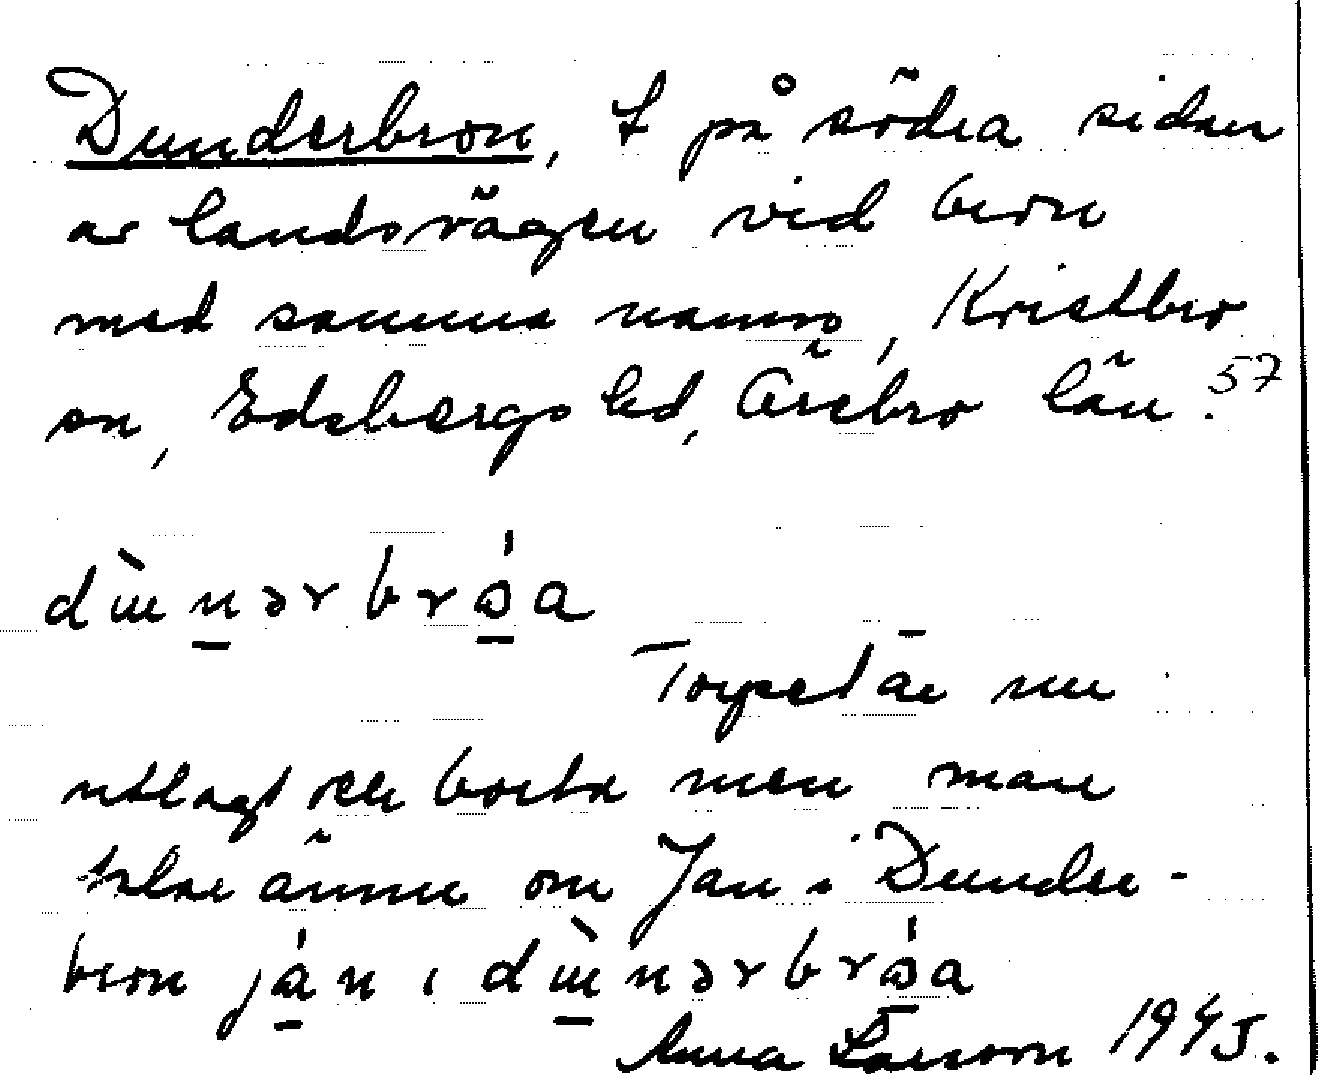 Dunderbron, t på södra sidan
av landsvägen vid bron
med samma namn, Kvistbro
sn, Edsbergs hd, Örebro län. 57
Torpet är nu
utlagt och borta men man
talar ännu om Jan i Dunder-
bron jàn i
Anna Larsson 1945.